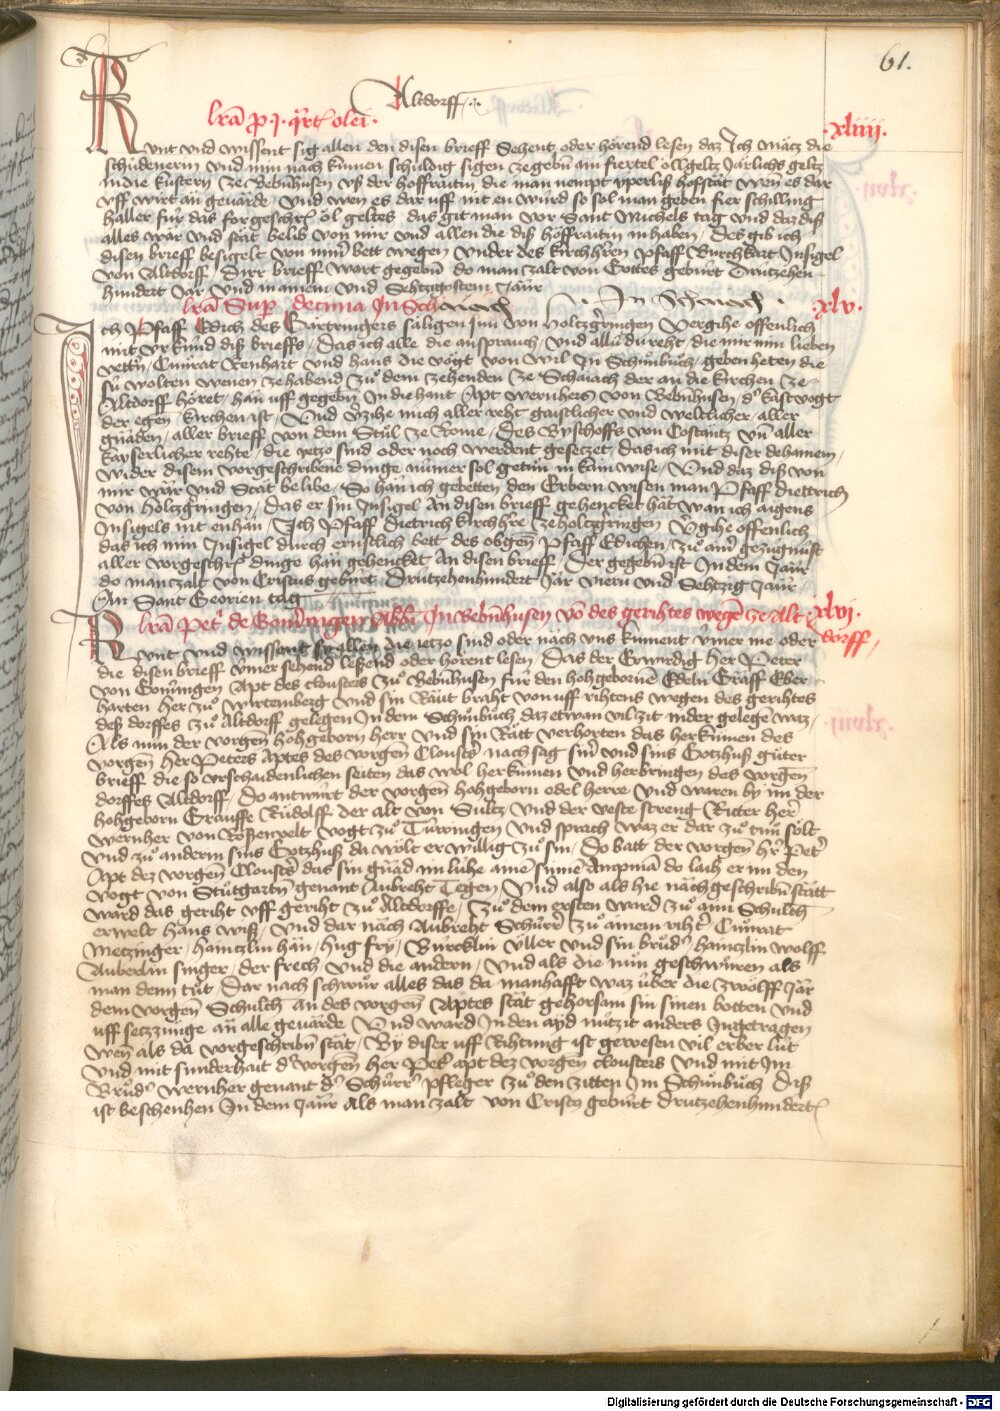 61.
Altdorff
lr̄a p̄ j. q̄rt olei.
xliiii.
Kunt vnd wissent sig allen den disen brieff Sehent oder hörend lesen daz Ich mätz die
schüdenerin vnd min nach kumen schuldig sigen ze geben ain fiertel öllgeltz Järlichs geltz
in die kustern ze Bebenhusen vß der hoffraitin die man nempt yperliß hofstat wen es dar
vff wirt an geuärde / Vnd wen es dar uff nit en würd so sol man geben fier schilling
haller für das for geschrē öl geltes das git man vor Sant Michels tag vnd daz diß
alles war vnd stät belib von mir vnd allen die diß hoffraitin in haben / Des gib ich
disen brieff besigelt von minr bett wegen vnder des kirchhren pfaff Burchkart Insigel
von Altdorff / Dirr brieff wart gegeben do man zalt von Gottes geburt Drützehen
hundert Jar Vnd in ainem vnd Sehtzigostem Jaur
lr̄a Sup decima In Schainach
In Schenach
xlv.
Ich Pfaff Edich des Gartringers säligen sun von holtzgringen vergihe offenlich
mit vrkünd diß brieffs / Das ich alle die ansprauch / vnd allü du reht / die mir min lieben
vettern / Cunrat Renhart vnd hans die vögt von wil In Schünbuch / geben heten die
sü wolten wenen ze habend zu dem zehenden ze Schainach der an die kirchen ze
Altdorff höret / han uff gegeben In die hant Apt wernhers von Bebenhusen / d' kastvogt
der egen kirchen ist / Vnd v'zihe mich aller reht gaistlicher vnd weltlicher / aller
gnäden / aller brieff von dem Stul ze Rome / Des Byschoffs von Costantz vn aller
kayserlicher rehte / die yetzo sind oder noch werdent gesetzet / das ich mit diser dehainem
wider disem vorgeschribene dinge nümer sol getun in kain wise / Vnd daz diß von
mir wär vnd Stät belibe / So han ich gebetten den Erbern wisen man Pfaff diettrich
von holtzgringen / das er sin Insigel An disen brieff gehencket hät wan ich aigens
Insigels nit enhan / Ich Pfaff dietrich kirchhre ze holtzgringen V'gihe offenlich
das ich min Insigel durch ernstlich bett des obgen Pfaff Edichen / zu ainr gezugnüst
aller vorgeschrē dinge han gehencket An disen brieff / Der gegeben ist In dem Jaur
do man zalt von Cristus geburt Drützehenhundert Jar viern vnd Sehtzig Jaur
An Sant Georien tag
lr̄a Pet' de Gom'ingen Abb' In Bebenhusen vō des gerihtes wegē ze Alt
xlvi.
dorff /
Kunt vnd wissent sy allen die ietzo sind oder näch vns kument ymer me oder
die disen brieff ymer sehend lesend oder hörent lesen / Das der Erwirdig her Peter
von Gomringen Apt des closters zu Bebenhusen für den hohgebornē Edeln Graff Eber
harten her zu wirtemberg vnd sin Raut braht von uff rihtens wegen des gerihtes
deß dorffes zu Altdorff gelegen In dem Schünbuch daz etwan vil zit nider gelegē waz /
Als nun der vorgen hohgeborn herr vnd syn Rätt verhorten das herkumen des
vorgen her Peters Aptes des vorgen Closters nach sag sinr vnd sins Gotzhuß guter
brieff die so vrschaidenlichen seiten das wol herkumen vnd herbringen des vorgen
dorffes Altdorff / Do antwurt der vorgen hohgeborn edel herre vnd waren by im der
hohgeborn Grauffe Rudolff der alt von Sultz vnd der veste streng Ritter her
wernher von Roßenvelt vogt zu Tüwingen vnd sprach waz er dar zu tun sölt
vnd zu anderm sins Gotzhuß da wölt er willig zu sin / Do batt der vorgen hr Pet'
Apt dez vorgen Closters das sin gnad im lühe ainē sinnē Amptmā do laih er im den
vogt von Stutgartn genant Aubreht Tegen / Vnd also als hie nächgeschriben statt
ward das geriht uff geriht zu Altdorffe / zu dem ersten ward zu aim Schulth
erwelt hans wiß / Vnd dar näch Aubreht Schürr zu ainem riht' Cunrat
Metzinger / haintzlin hän / hug fry / Burcklin yller vnd sin brud' haintzlin wolff
Auberlin singer / der frech / vnd die andern / Vnd als die nun geschwuren als
man denn tut / Dar nach schwur alles das da manhafft waz über die zwölff Jar
dem vorgen Schulth an des vorgen Aptes stät gehorsam sin sinen botten vnd
uff setzzunge an alle geuärde / Vnd ward In den ayd nützit anders Ingetragen
wen als da vorgeschriben stät / By diser uff Rihtung ist gewesen vil erber lüt
vnd mit sunderhait d' vorgen her Pet' apt dez vorgen closters vnd mit Im
Brud' wernher genant d' Schürr' pfleger zu den zitten Im Schünbuch / Diß
ist beschenhen In dem Jaur Als man zalt von Cristo geburt drützehenhundert
Digitalisierung gefördert durch die Deutsche Forschungsgemeinschaft - DFG